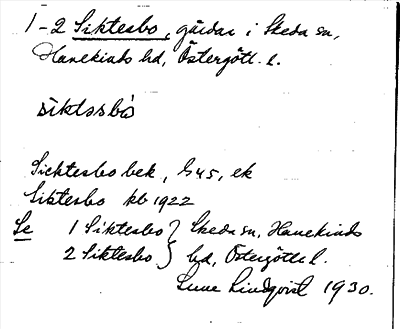 1-2 Siktesbo, gårdar i Skeda sn,
Hanekinds hd, Östergötl. l.
siktəsbò
Sichtesbo bek, G45, ek
Siktesbo kb 1922
Se 1 Siktesbo } Skeda sn, Hanekinds
2 Siktesbo } hd, Östergötl. l.
Sune Lindqvist 1930.